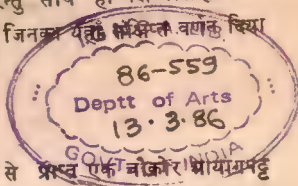 जिनका यहाँ संक्षिप्त वर्णन किया
86-559
Deptt of Arts
13.3.86
GOVT INDIA
से प्राप्त एक चौकोर आयागपट्ट